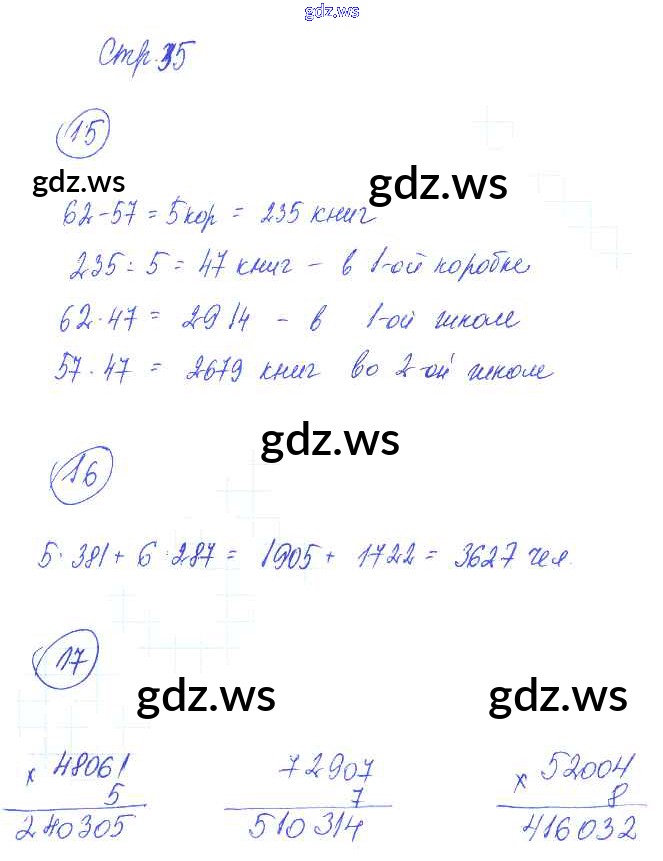 gdz.ws
Стр. 35
15
gdz.ws gdz.ws
62-57 = 5 кор = 235 книг
235 : 5 = 47 книг - в 1-ой коробке
62 · 47 = 2914 - в 1-ой школе
57 · 47 = 2679 книг во 2-ой школе
gdz.ws
16
5 · 381 + 6 · 287 = 1905 + 1722 = 3627 чел.
17
gdz.ws gdz.ws
x 48061 72907 x 52004
5 7 8
240305 510314 416032